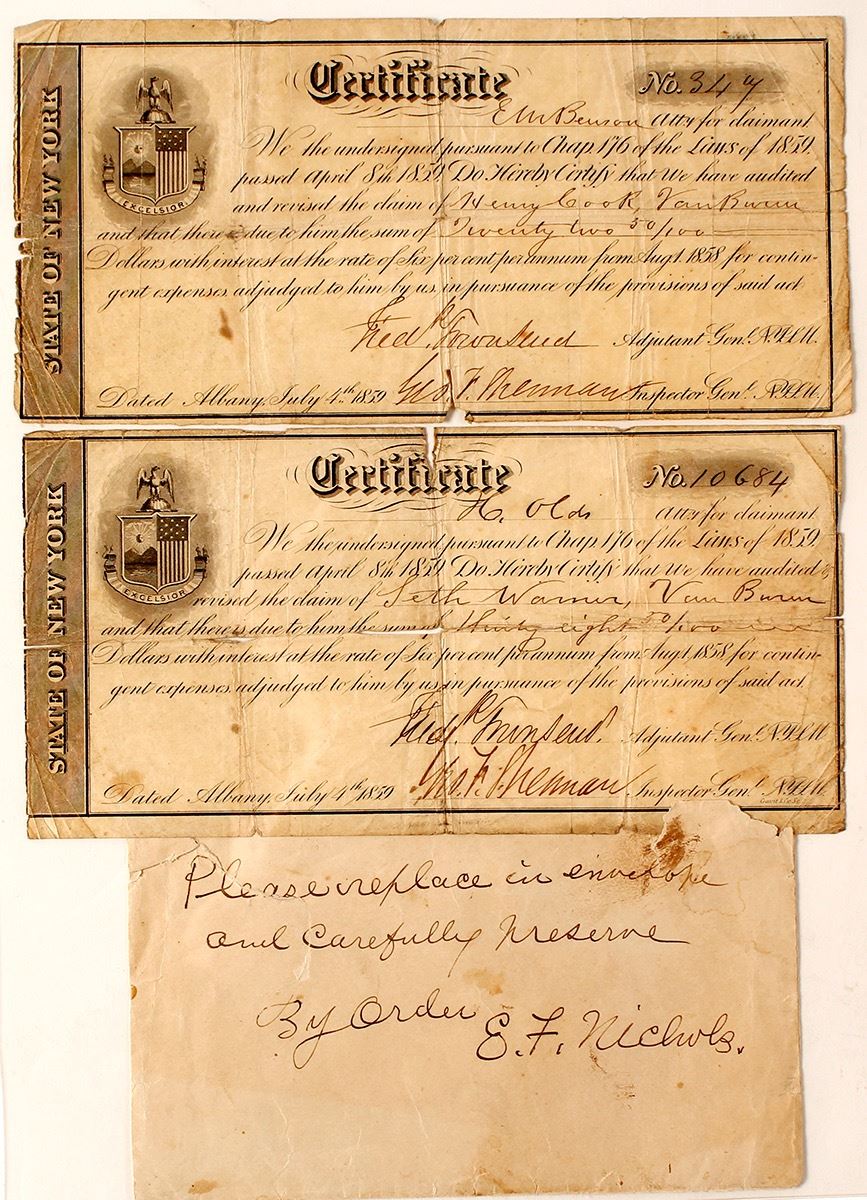 STATE OF NEW YORK
EXCELSIOR
Certificate
No. 347
E M Benson Atty for claimant
We the undersigned pursuant to Chap 176 of the Laws of 1859
passed April 8th 1859 Do Hereby Certify that We have audited
and revised the claim of Henry Cook, Van Buren
and that there is due to him the sum of Twenty two 50/100
Dollars with interest at the rate of Six per cent per annum from Augt 1858 for contin-
gent expenses adjudged to him by us in pursuance of the provisions of said act
Fredk. Townsend Adjutant Genl. N.Y.S.M.
Dated Albany, July 4th 1859 Geo F. Sherman Inspector Genl. N.Y.S.M.
STATE OF NEW YORK
EXCELSIOR
Certificate
No. 10684
H. Olds Atty for claimant
We the undersigned pursuant to Chap 176 of the Laws of 1859
passed April 8th 1859 Do Hereby Certify that We have audited &
revised the claim of Seth Warner, Van Buren
and that there is due to him the sum of thirty eight 50/100
Dollars with interest at the rate of Six per cent per annum from Augt 1858 for contin-
gent expenses adjudged to him by us in pursuance of the provisions of said act
Fredk. Townsend. Adjutant Genl. N.Y.S.M
Dated Albany, July 4th 1859 Geo. F. Sherman Inspector Genl. N.Y.S.M.
Please replace in envelope
and Carefully Preserve
By Order E. F. Nichols.